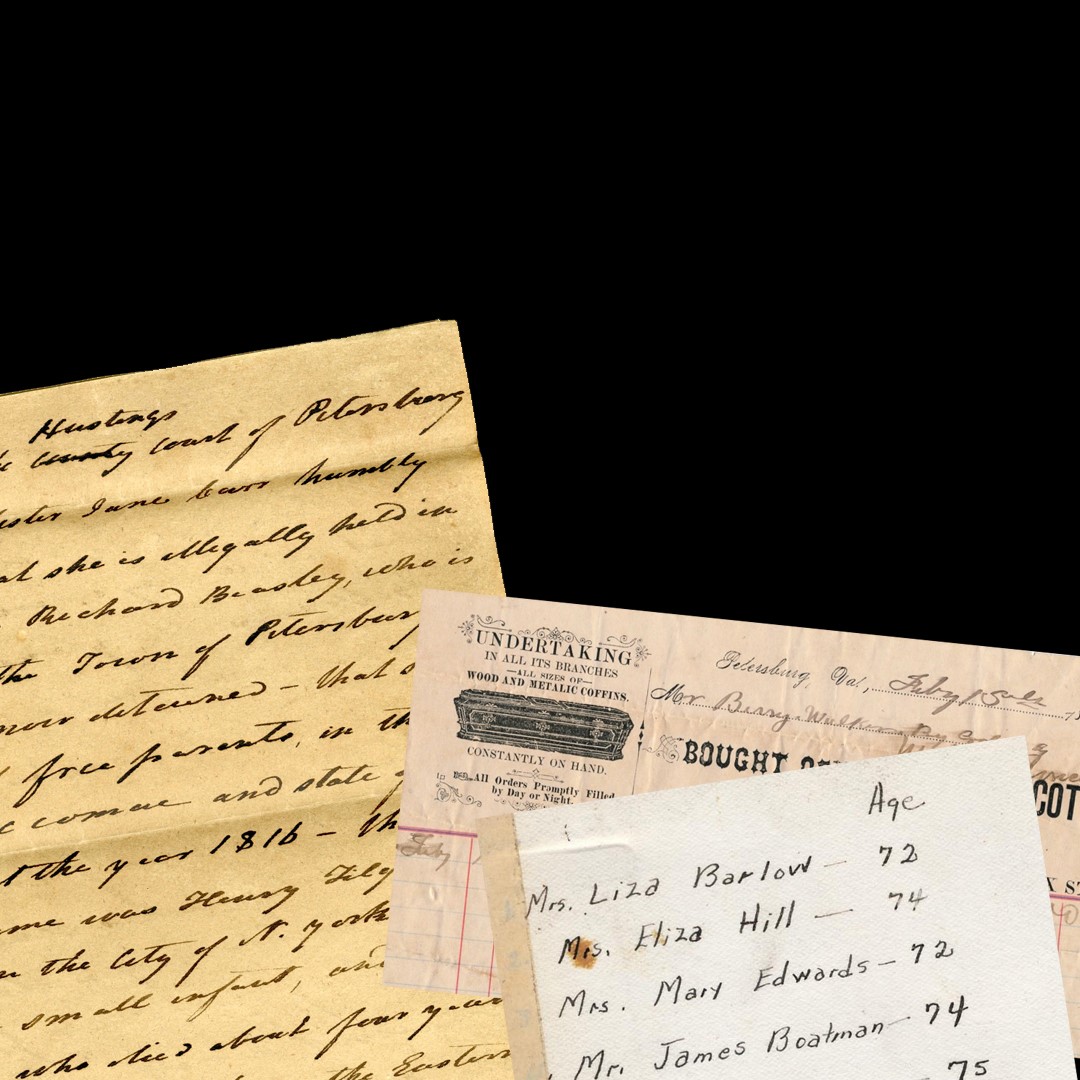 Hustings
county court of Petersburg
Jane Carr humbly
she is illegally held in
Richard Beasley, who is
the Town of Petersbur
now detained - that
free parents, in th
comac and state
the year 1816 - th
me was Henry
the City of N. york
small infant, and
who died about four year
the Eastern
UNDERTAKING
IN ALL ITS BRANCHES
—ALL SIZES OF—
WOOD AND METALIC COFFINS.
CONSTANTLY ON HAND.
All Orders Promptly Filled
by Day or Night.
Petersburg, Va.,
Mr Berry Walker
BOUGHT
COT
K ST
Age
Mrs. Liza Barlow — 72
Mrs. Eliza Hill — 74
Mrs. Mary Edwards — 72
Mr. James Boatman — 74
75